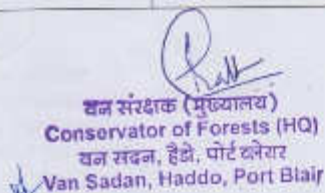 वन संरक्षक (मुख्यालय)
Conservator of Forests (HQ)
वन सदन, हैडो, पोर्ट ब्लेयर
Van Sadan, Haddo, Port Blair